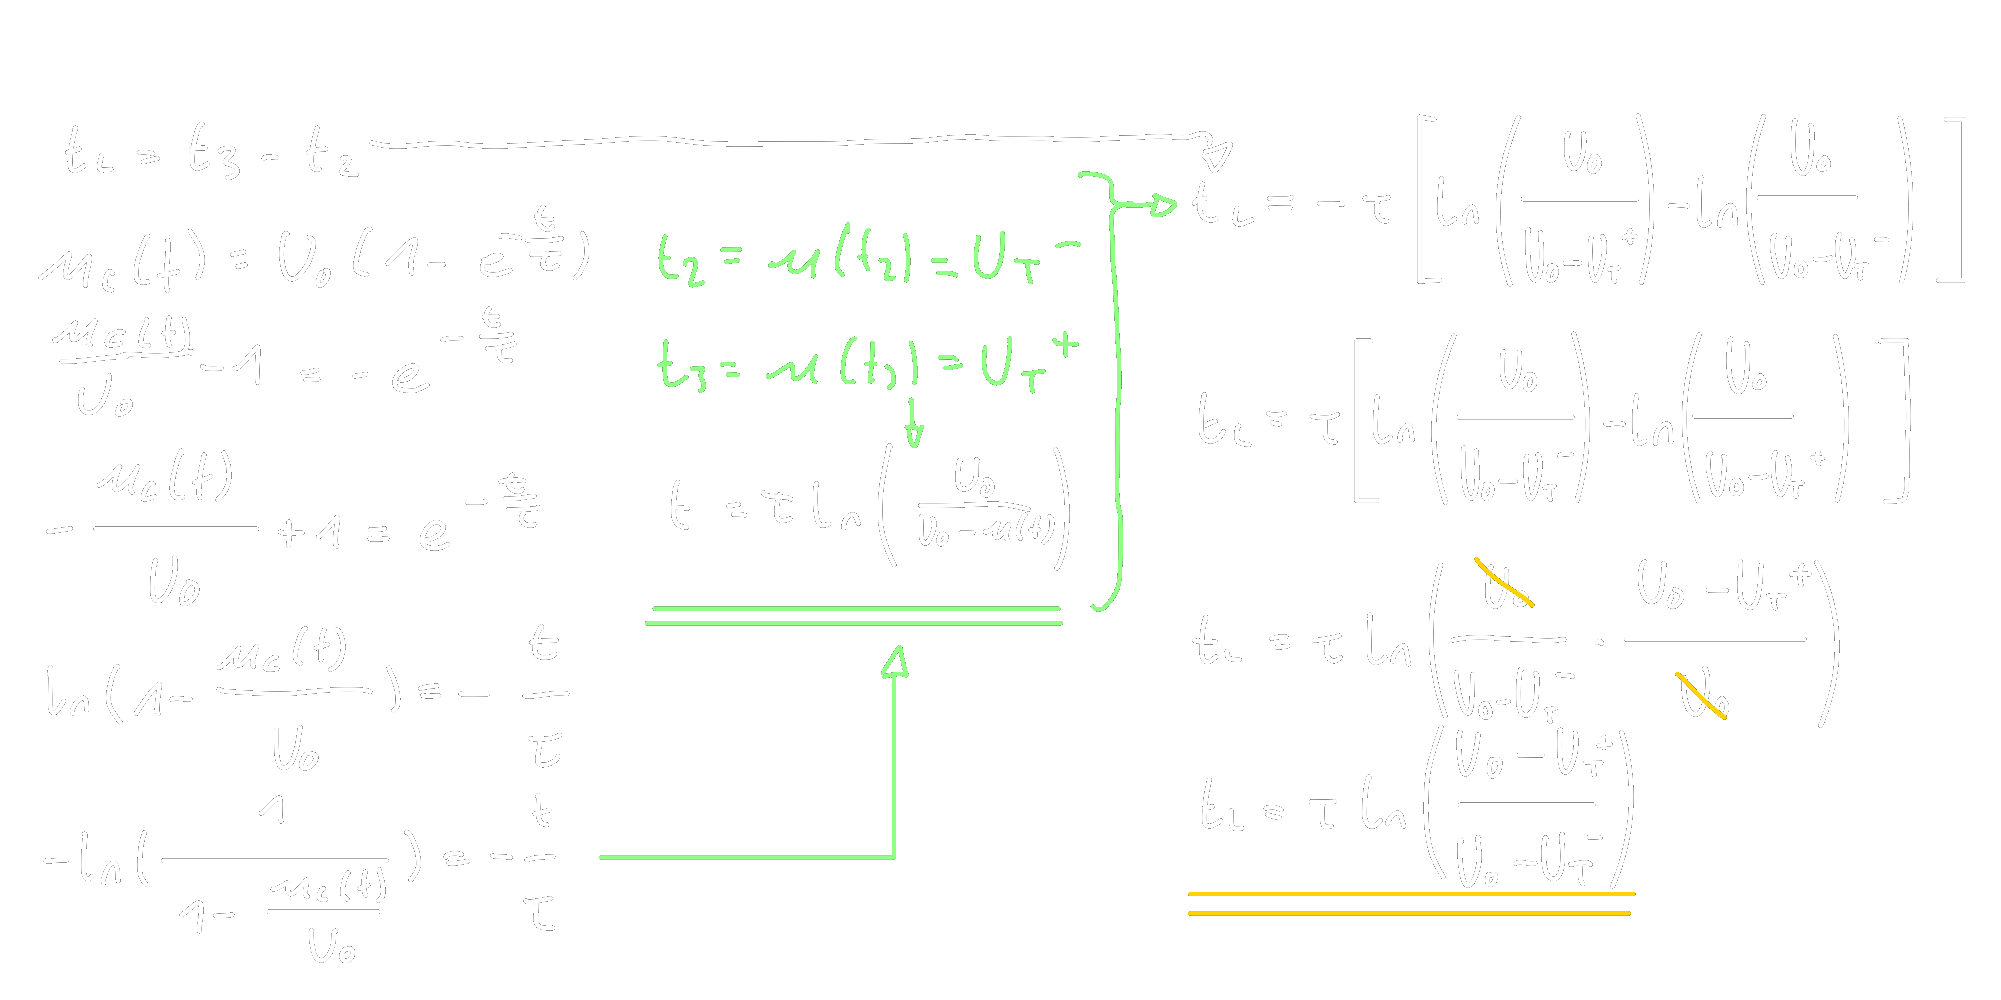 t_L = t_3 - t_2
u_C(t) = U_0 (1 - e^{-t/τ})
u_C(t)/U_0 - 1 = - e^{-t/τ}
- u_C(t)/U_0 + 1 = e^{-t/τ}
ln(1 - u_C(t)/U_0) = - t/τ
-ln(1/(1 - u_C(t)/U_0)) = - t/τ
t_2 = u(t_2) = U_T^-
t_3 = u(t_3) = U_T^+
t = τ ln(U_0/(U_0 - u(t)))
t_L = - τ [ln(U_0/(U_0 - U_T^+)) - ln(U_0/(U_0 - U_T^-))]
t_L = τ [ln(U_0/(U_0 - U_T^-)) - ln(U_0/(U_0 - U_T^+))]
t_L = τ ln(U_0/(U_0 - U_T^-) · (U_0 - U_T^+)/U_0)
t_L = τ ln((U_0 - U_T^+)/(U_0 - U_T^-))